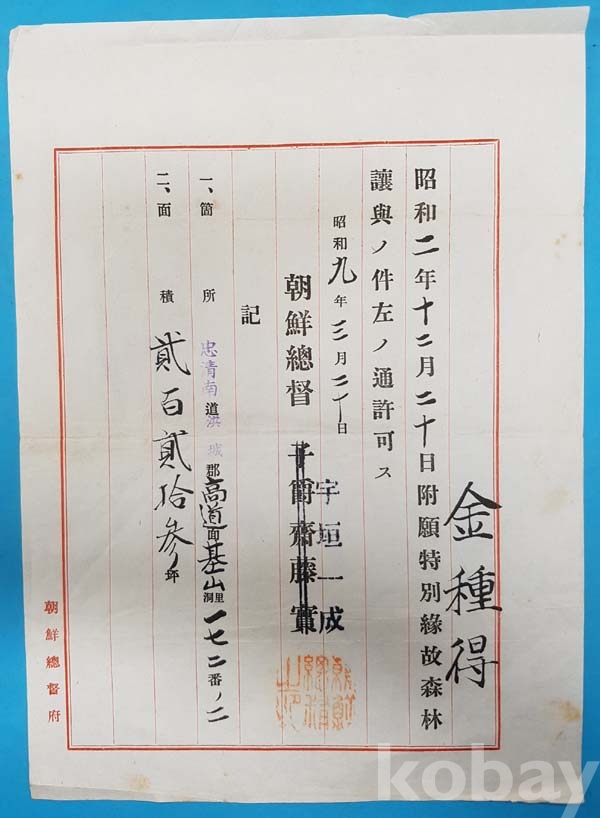 金種得
昭和二年十二月二十日附願特別緣故森林
讓與ノ件左ノ通許可ス
昭和九年三月二十日
宇垣一成
朝鮮總督 子爵齋藤實
記
一、箇所 忠清南道洪城郡高道面基山里洞一七二番ノ二
二、面積 貳百貳拾參坪
朝鮮總督府
kobay